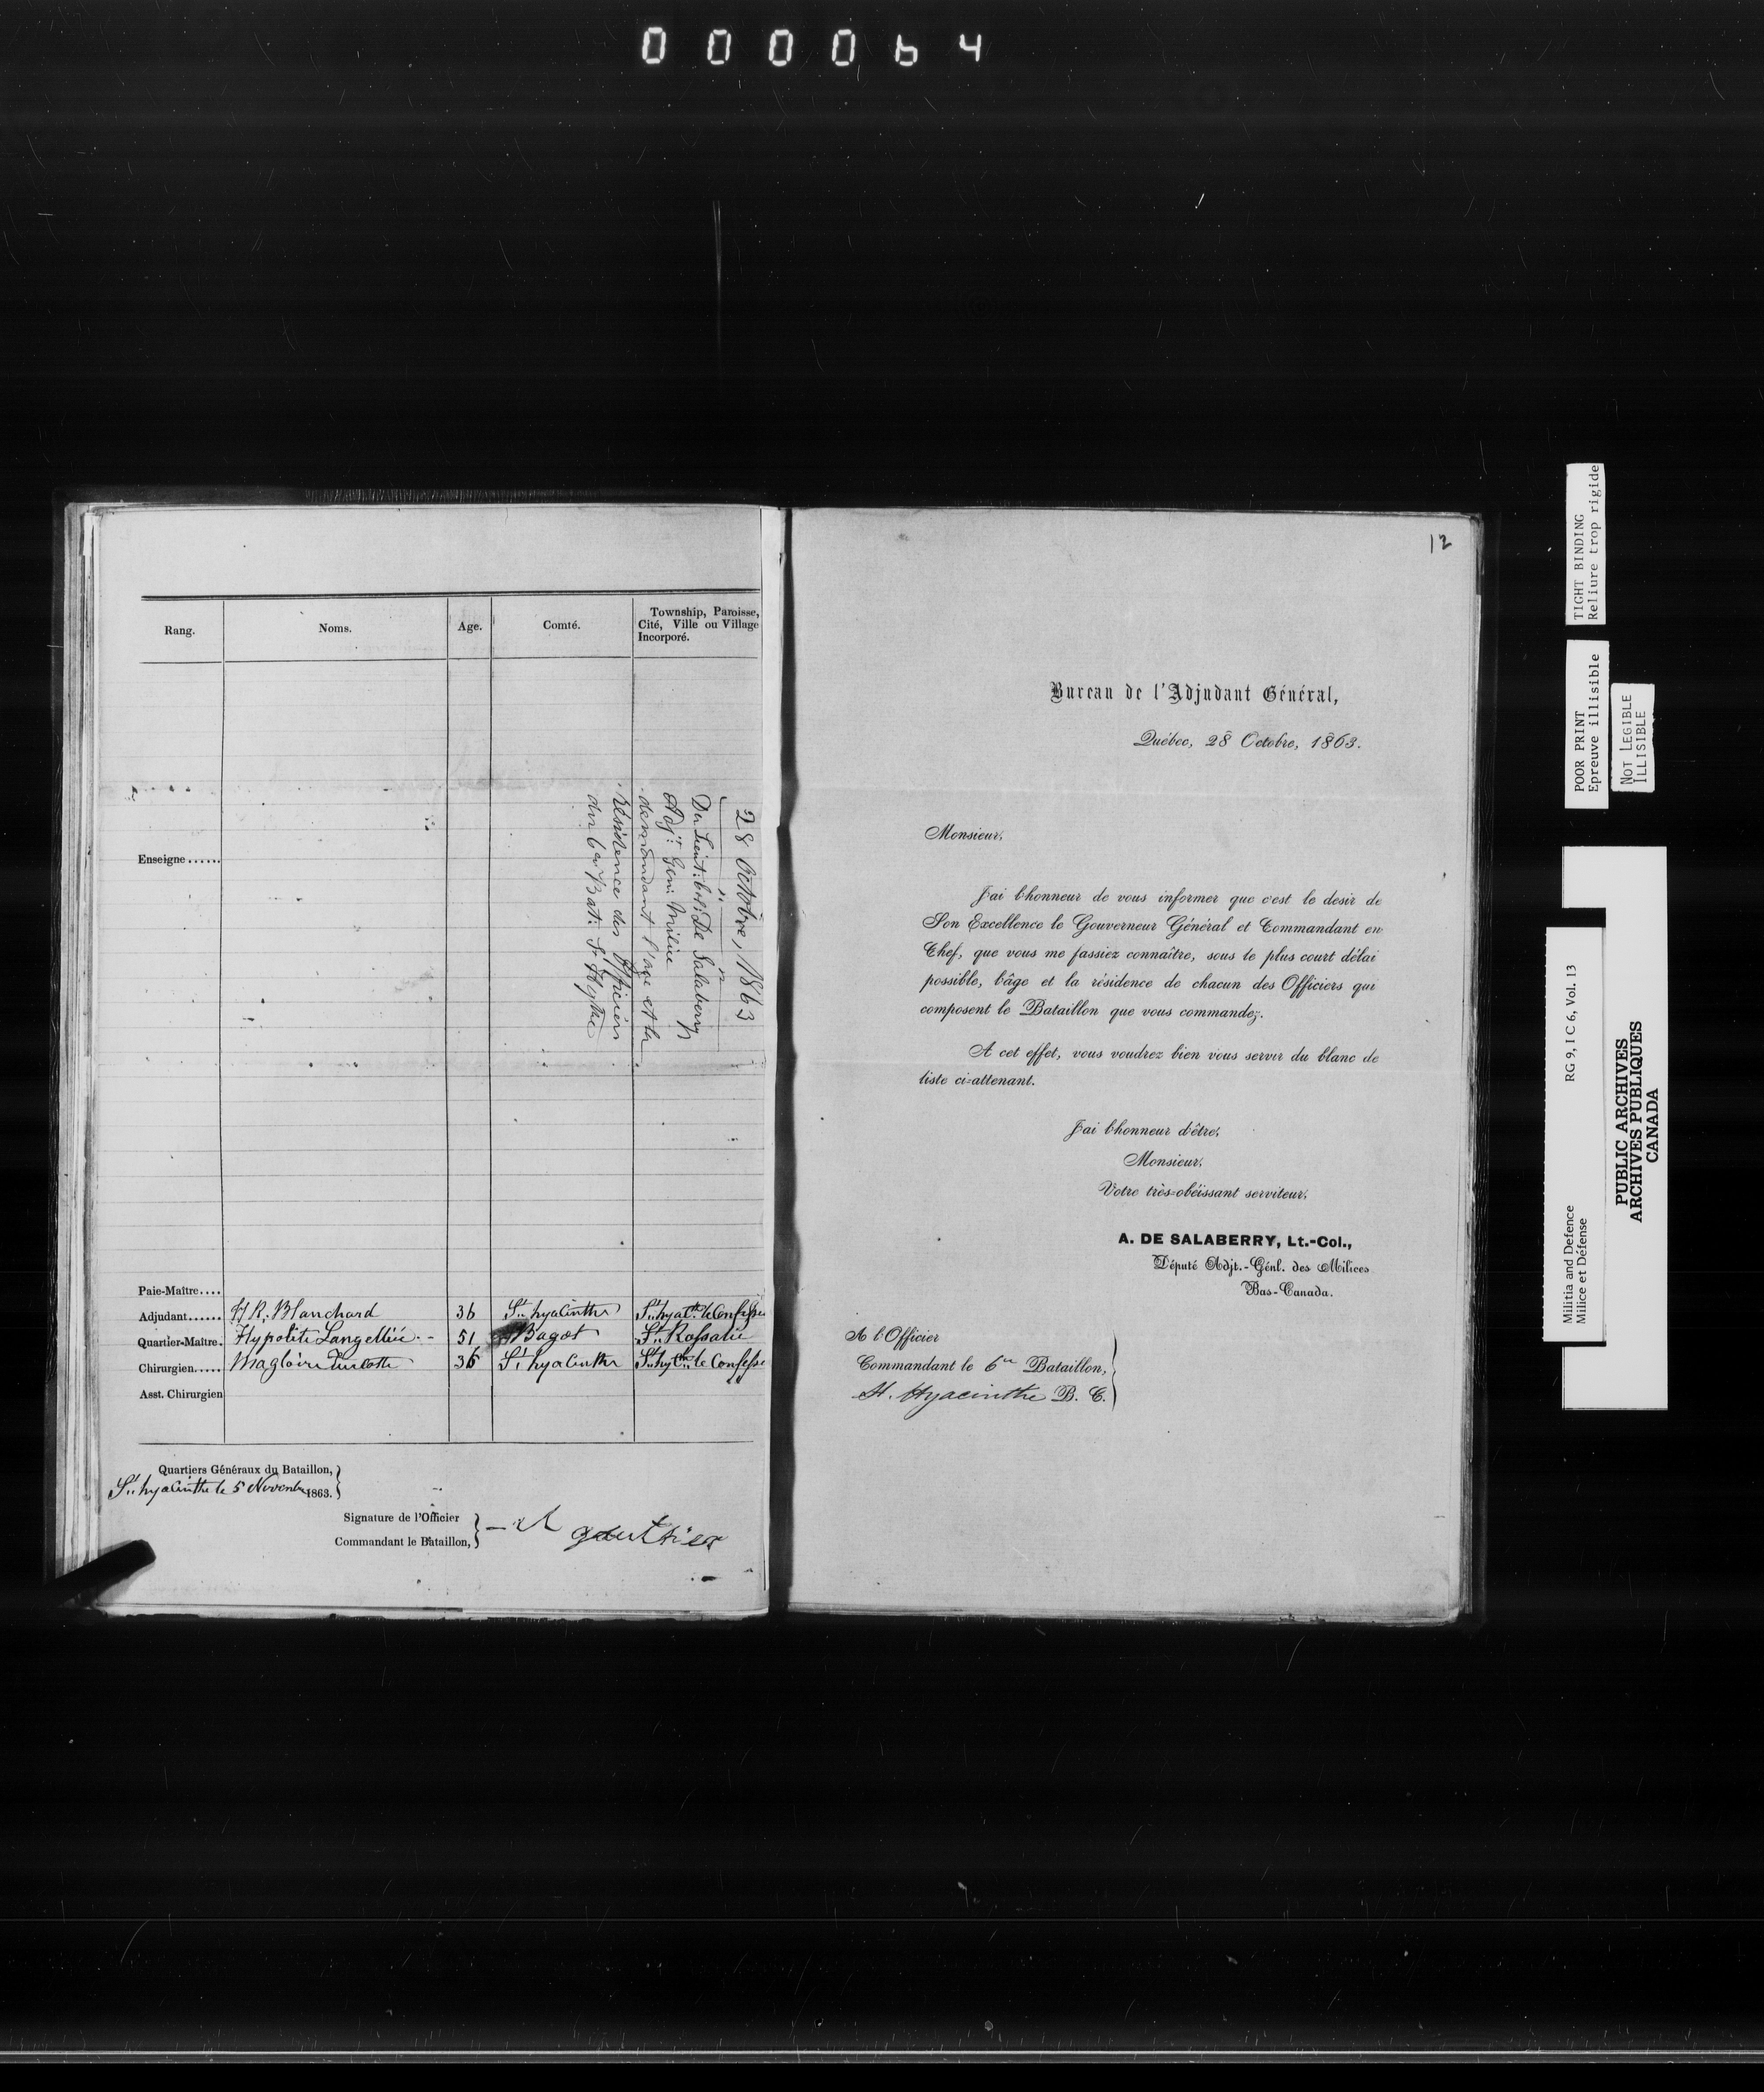 000064
Rang.
Noms.
Age.
Comté.
Township, Paroisse,
Cité, Ville ou Village
Incorporé.
Enseigne......
28 Octobre, 1863
Du Lieut: Col: De Salaberry
Adj: Gen: Milice
demandant l'age et la
résidence des Officiers
du 6e Bat: St Hythe
Paie-Maître....
Adjudant...... H R. Blanchard 36 St. hyacinthe St. hyacthe le Confesse
Quartier-Maître. Hypolite Langellier 51 Bagot St. Rosalie
Chirurgien..... Magloire Turcotte 36 St. hyacinthe St. hythe le Confesse
Asst. Chirurgien
Quartiers Généraux du Bataillon,
St. hyacinthe le 5 Novembre 1863.
Signature de l'Officier
Commandant le Bataillon,
gauthier
12
Bureau de l'Adjudant Général,
Québec, 28 Octobre, 1863.
Monsieur,
J'ai l'honneur de vous informer que c'est le desir de
Son Excellence le Gouverneur Général et Commandant en
Chef, que vous me fassiez connaître, sous le plus court délai
possible, l'âge et la résidence de chacun des Officiers qui
composent le Bataillon que vous commandez.
A cet effet, vous voudrez bien vous servir du blanc de
liste ci-attenant.
J'ai l'honneur d'être,
Monsieur,
Votre très-obéissant serviteur,
A. DE SALABERRY, Lt.-Col.,
Député Adjt.-Génl. des Milices
Bas-Canada.
A l'Officier
Commandant le 6me Bataillon,
St. Hyacinthe B. C.
TIGHT BINDING
Reliure trop rigide
POOR PRINT
Epreuve illisible
NOT LEGIBLE
ILLISIBLE
RG 9, I C 6, Vol. 13
Militia and Defence
Milice et Défense
PUBLIC ARCHIVES
ARCHIVES PUBLIQUES
CANADA